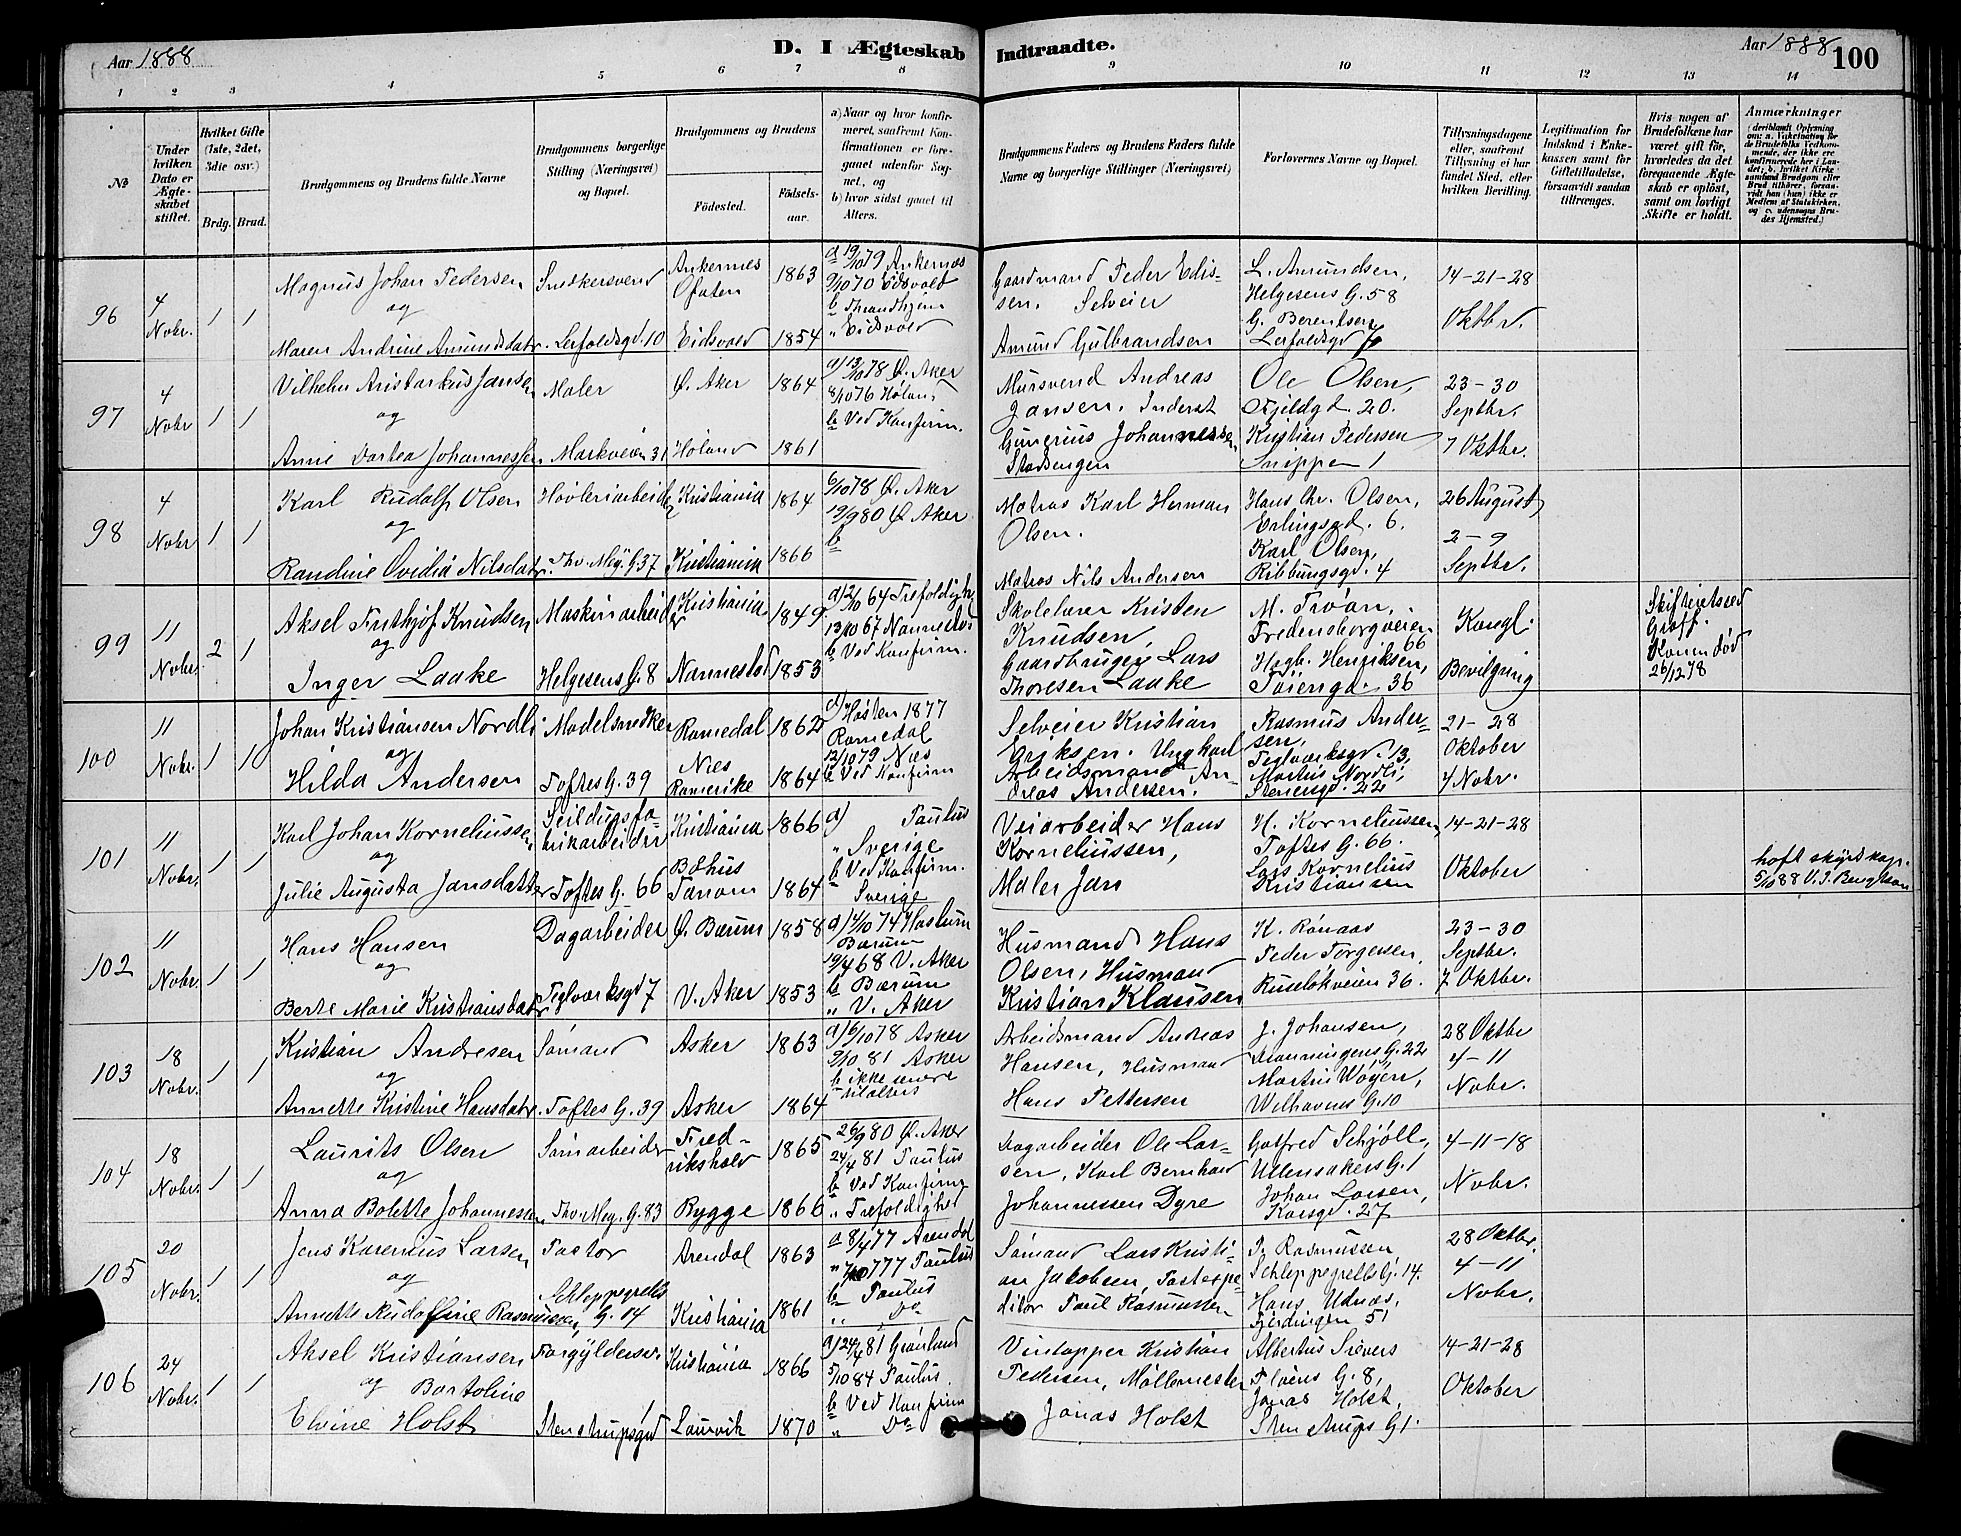 Aar 1888
D. I Ægteskab Indtraadte.
Aar 1888
100
1 2 3 4 5 6 7 8 9 10 11 12 13 14
№
Under hvilken Dato er Ægteskabet stiftet.
Hvilket Gifte (1ste, 2det, 3die osv.)
Brdg. Brud.
Brudgommens og Brudens fulde Navne
Brudgommens borgerlige Stilling (Næringsvei) og Bopæl.
Brudgommens og Brudens
Födested.
Födselsaar.
a) Naar og hvor konfirmeret, saafremt Konfirmationen er foregaaet udenfor Sognet, og
b) hvor sidst gaaet til Alters.
Brudgommens Faders og Brudens Faders fulde Navne og borgerlige Stillinger (Næringsvei)
Forlovernes Navne og Bopæl.
Tillysningsdagene eller, saafremt Tillysning ei har fundet Sted, efter hvilken Bevilling.
Legitimation for Indskud i Enkekassen samt for Giftetilladelse, forsaavidt saadan tiltrænges.
Hvis nogen af Brudefolkene har været gift før, hvorledes da det foregaaende Ægteskab er oplöst, samt om lovligt Skifte er holdt.
Anmærkninger
96
4 Nobr.
1 1
Magnus Johan Pedersen
og
Maren Andrine Amundsdatr.
Snedkersvend
Lerfoldsgd. 10
Ankernes Ofoten 1863
Eidsvold 1854
a 19/10 79 Ankernæs
9/10 70 Eidsvold
b Throndhjem
" Eidsvold
Gaardmand Peder Edissen. Selveier
Amund Gulbrandsen
L. Amundsen,
Helgesens G. 58
G. Berentsen
Lerfoldsgd 7
14-21-28
Oktbr.
97
4 Nobr
1 1
Vilhelm Aristarkus Jansen
og
Anne Dortea Johannessen
Maler
Markveien 31
Ø. Aker 1864
Høland 1861
a) 13/10 78 Ø. Aker
8/10 76 Høland
b Ved Konfirm.
Mursvend Andreas
Jansen. Inderst
Gunerius Johannessen
Stadsengen
Ole Olsen,
Fjeldgd. 20.
Kristian Pedersen
Snippen 1
23-30
Septbr.
7 Oktbr.
98
4 Nobr
1 1
Karl Rudolf Olsen
og
Randine Ovidia Nilsdatr.
Høvleriarbeider
Thv. Mey. G 37
Kristiania 1864
Kristiania 1866
6/10 78 Ø. Aker
19/9 80 Ø Aker
b
Matros Karl Herman
Olsen.
Matros Nils Andersen
Hans Chr. Olsen,
Erlingsgd. 6.
Karl Olsen,
Ribbungsgd. 4
26 August
2-9
Septbr.
99
11 Nobr.
2 1
Aksel Frithjof Knudsen
og
Inger Laake
Maskinarbeider
Helgesens G. 8
Kristiania 1849
Nannestad 1853
a) 2/10 64 Trefoldigh.
13/10 67 Nannestad
b Ved Konfirm.
Skolelærer Kristen
Knudsen,
Gaardbruger Lars
Thoresen Laake
M. Trøan,
Fredensborgveien 66
Hagb. Henriksen,
Tøiengd. 36
Kongl.
Bevilgning
Skifteretsed
Graff.
Konen død
26/12 78
100
11 Nobr.
1 1
Johan Kristiansen Nordli
og
Hilda Andersen
Modelsnedker
Toftes G. 39
Romedal 1862
Næs Romerike 1864
a) Høsten 1877
Romedal
12/10 79 Næs
b Ved Konfirm
Selveier Kristian
Eriksen. Ungkarl
Arbeidsmand Andreas Andersen.
Rasmus Andersen,
Teglværksgd. 13,
Martus Nordli,
Stenersgd. 22
21-28
Oktober
4 Nobr.
101
11 Nobr.
1 1
Karl Johan Korneliussen
og
Julie Augusta Jansdatter
Seildugsfabrikarbeider
Toftes G. 66
Kristiania 1866
Bohus Tanom 1864
a) Paulus
" Sverige
b Ved Konfirm.
Sverige
Veiarbeider Hans
Korneliussen,
Maler Jan
H. Korneliussen,
Toftes G. 66.
Lars Kornelius
Kristiansen
14-21-28
Oktober
5/10 88
102
11 Nobr.
1 1
Hans Hansen
og
Berte Marie Kristiansdatr
Dagarbeider
Teglværksgd 7
Ø. Bærum 1858
V. Aker 1853
a) 4/10 74 Haslum
Bærum
19/4 68 V. Aker
b Bærum
" V. Aker
Husmand Hans
Olsen, Husmand
Kristian Klausen
K. Rønaas
Peder Torgersen,
Ruseløkveien 36.
23-30
Septbr.
7 Oktbr.
103
18 Nobr.
1 1
Kristian Andresen
og
Annette Kristine Hansdatr.
Sømand
Toftes G. 39
Asker 1863
Asker 1864
a) 6/10 78 Asker
9/10 81 Asker
b ikke senere
tilalters
Arbeidsmand Andreas
Hansen, Husmand
Hans Pettersen
J. Johansen,
Dronningens G. 22
Martin Wøyen,
Welhavens G. 10
28 Oktbr
4-11
Nobr.
104
18 Nobr.
1 1
Laurits Olsen
og
Anna Bolette Johannessen
Sømarbeider
Thv. Mey. G. 83
Fredrikshald 1865
Rygge 1866
26/9 80 Ø. Aker
24/4 81 Paulus
b Ved Konfirm
" Trefoldighed
Dagarbeider Ole Larsen, Karl Bernhard
Johannessen Dyre
Gotfred Schjøll,
Ullensakers G. 1
Johan Larsen,
Korsgd. 27
4-11-18
Nobr.
105
20 Nobr.
1 1
Jens Karenius Larsen
og
Annette Rudolfine Rasmussen,
Pastor
Schleppegrells G. 14
Arendal 1863
Kristiania 1861
a 8/4 77 Arendal
" 7/10 77 Paulus
b Paulus
" Do
Sømand Lars Kristian Jakobsen, Postexpeditør Paul Rasmussen
P. Rasmussen
Schleppegrells G. 14.
Hans Udnæs,
Fjerdingen 51
28 Oktbr.
4-11
Nobr.
106
24 Nobr.
1 1
Aksel Kristiansen
og Bartoline
Elvine Holst
Forgyldersv.
Stenstrupsgd 1
Kristiania 1866
Laurvik 1870
a) 24/4 81 Grønland
5/10 84 Paulus.
b Ved Konfirm
" Do
Vintapper Kristian
Pedersen, Møllemester
Jonas Holst
Albertus Sievers
Fløens G. 8,
Jonas Holst,
Stenstrups G 1.
14-21-28
Oktober